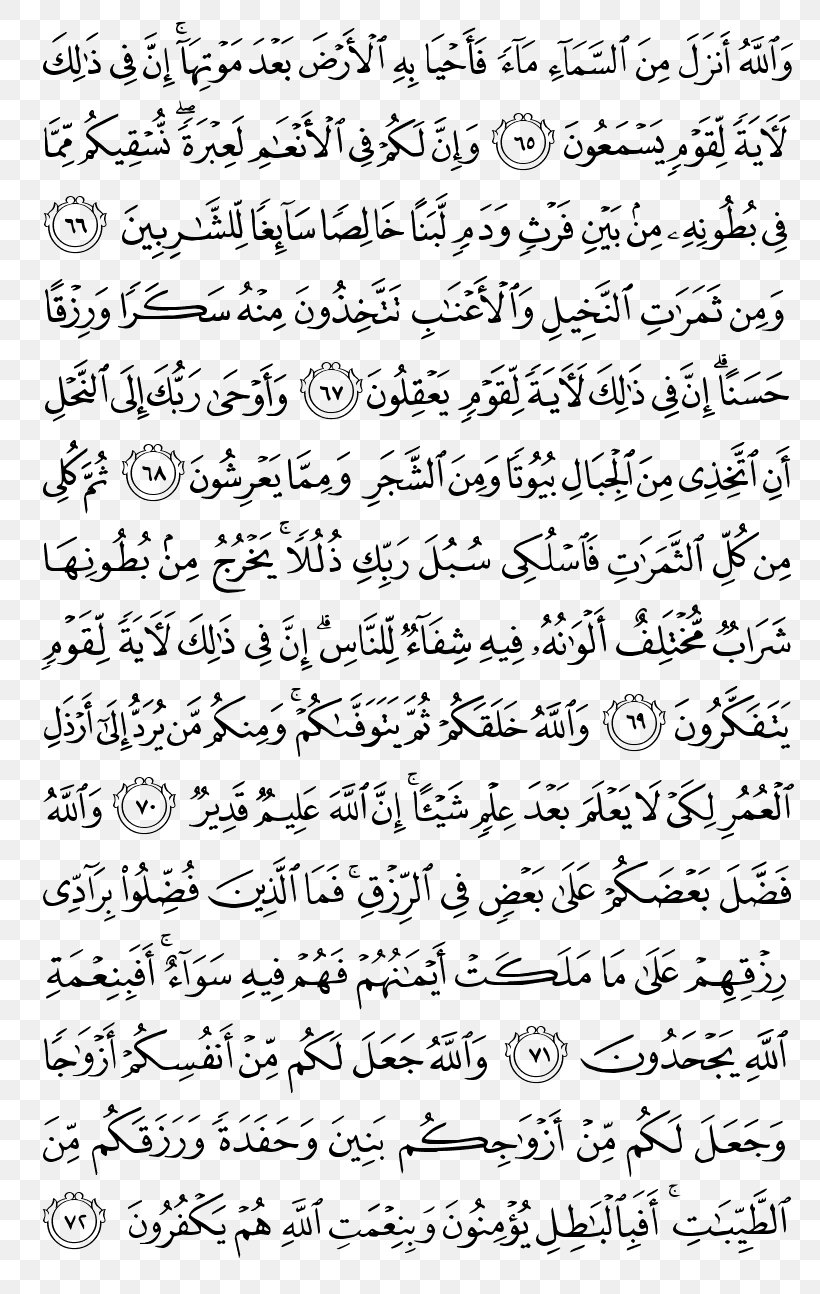 وَٱللَّهُ أَنزَلَ مِنَ ٱلسَّمَآءِ مَآءً فَأَحْيَا بِهِ ٱلْأَرْضَ بَعْدَ مَوْتِهَآ ۚ إِنَّ فِى ذَٰلِكَ
لَـَٔايَةً لِّقَوْمٍ يَسْمَعُونَ ٦٥ وَإِنَّ لَكُمْ فِى ٱلْأَنْعَـٰمِ لَعِبْرَةً ۖ نُّسْقِيكُم مِّمَّا
فِى بُطُونِهِۦ مِنۢ بَيْنِ فَرْثٍ وَدَمٍ لَّبَنًا خَالِصًا سَآئِغًا لِّلشَّـٰرِبِينَ ٦٦
وَمِن ثَمَرَٰتِ ٱلنَّخِيلِ وَٱلْأَعْنَـٰبِ تَتَّخِذُونَ مِنْهُ سَكَرًا وَرِزْقًا
حَسَنًا ۗ إِنَّ فِى ذَٰلِكَ لَـَٔايَةً لِّقَوْمٍ يَعْقِلُونَ ٦٧ وَأَوْحَىٰ رَبُّكَ إِلَى ٱلنَّحْلِ
أَنِ ٱتَّخِذِى مِنَ ٱلْجِبَالِ بُيُوتًا وَمِنَ ٱلشَّجَرِ وَمِمَّا يَعْرِشُونَ ٦٨ ثُمَّ كُلِى
مِن كُلِّ ٱلثَّمَرَٰتِ فَٱسْلُكِى سُبُلَ رَبِّكِ ذُلُلًا ۚ يَخْرُجُ مِنۢ بُطُونِهَا
شَرَابٌ مُّخْتَلِفٌ أَلْوَٰنُهُۥ فِيهِ شِفَآءٌ لِّلنَّاسِ ۗ إِنَّ فِى ذَٰلِكَ لَـَٔايَةً لِّقَوْمٍ
يَتَفَكَّرُونَ ٦٩ وَٱللَّهُ خَلَقَكُمْ ثُمَّ يَتَوَفَّىٰكُمْ ۚ وَمِنكُم مَّن يُرَدُّ إِلَىٰٓ أَرْذَلِ
ٱلْعُمُرِ لِكَىْ لَا يَعْلَمَ بَعْدَ عِلْمٍ شَيْـًٔا ۚ إِنَّ ٱللَّهَ عَلِيمٌ قَدِيرٌ ٧٠ وَٱللَّهُ
فَضَّلَ بَعْضَكُمْ عَلَىٰ بَعْضٍ فِى ٱلرِّزْقِ ۚ فَمَا ٱلَّذِينَ فُضِّلُوا۟ بِرَآدِّى
رِزْقِهِمْ عَلَىٰ مَا مَلَكَتْ أَيْمَـٰنُهُمْ فَهُمْ فِيهِ سَوَآءٌ ۚ أَفَبِنِعْمَةِ
ٱللَّهِ يَجْحَدُونَ ٧١ وَٱللَّهُ جَعَلَ لَكُم مِّنْ أَنفُسِكُمْ أَزْوَٰجًا
وَجَعَلَ لَكُم مِّنْ أَزْوَٰجِكُم بَنِينَ وَحَفَدَةً وَرَزَقَكُم مِّنَ
ٱلطَّيِّبَـٰتِ ۚ أَفَبِٱلْبَـٰطِلِ يُؤْمِنُونَ وَبِنِعْمَتِ ٱللَّهِ هُمْ يَكْفُرُونَ ٧٢